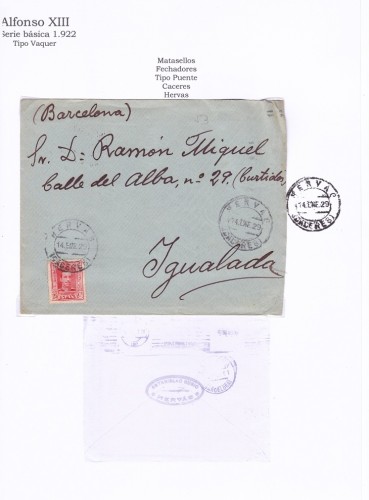 Alfonso XIII
Serie básica 1.922
Tipo Vaquer
Matasellos
Fechadores
Tipo Puente
Caceres
Hervas
(Barcelona)
Sr. D. Ramón Miquel
Calle del Alba, nº 29, (Curtidos)
Igualada
HERVAS
14.ENE.29
(CACERES)
HERVAS
14.ENE.29
(CACERES)
HERVAS
14.ENE.29
(CACERES)
HERVÁS